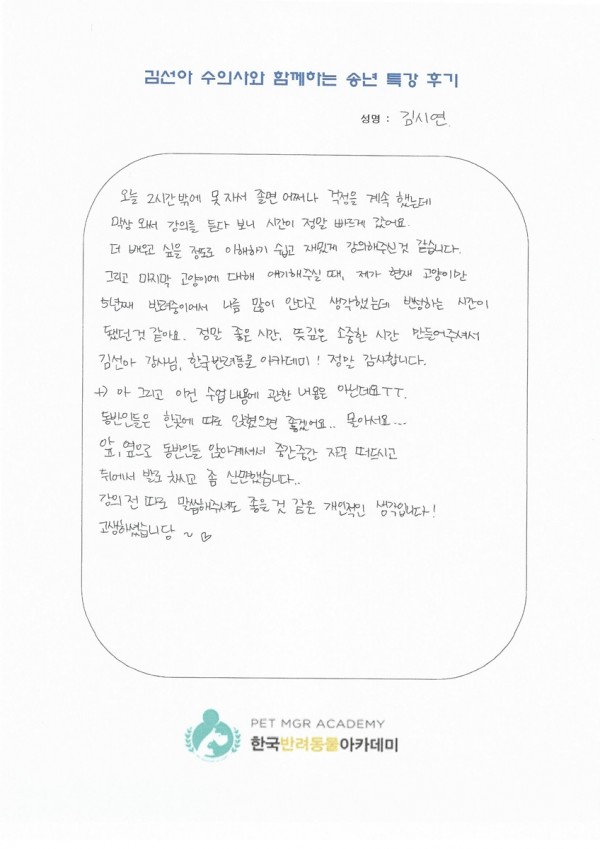 김선아 수의사와 함께하는 송년 특강 후기
성명 : 김시연
오늘 2시간밖에 못 자서 졸면 어쩌나 걱정을 계속 했는데
막상 와서 강의를 듣다 보니 시간이 정말 빠르게 갔어요.
더 배우고 싶을 정도로 이해하기 쉽고 재밌게 강의해주신 것 같습니다.
그리고 마지막 고양이에 대해 얘기해주실 때, 제가 현재 고양이만
5년째 반려중이어서 나름 많이 안다고 생각했는데 반성하는 시간이
됐던 것 같아요. 정말 좋은 시간, 뜻깊은 소중한 시간 만들어주셔서
김선아 강사님, 한국반려동물아카데미! 정말 감사합니다.
+) 아 그리고 이건 수업내용에 관한 내용은 아닌데요ㅜㅜ.
동반인들은 한곳에 따로 앉혔으면 좋겠어요.. 몰아서요...
앞, 옆으로 동반인들 앉아계셔서 중간중간 자꾸 떠드시고
뒤에서 발로 차시고 좀 산만했습니다..
강의 전 따로 말씀해주셔도 좋을 것 같은 개인적인 생각입니다!
고생하셨습니당 ~ ♡
PET MGR ACADEMY
한국반려동물아카데미